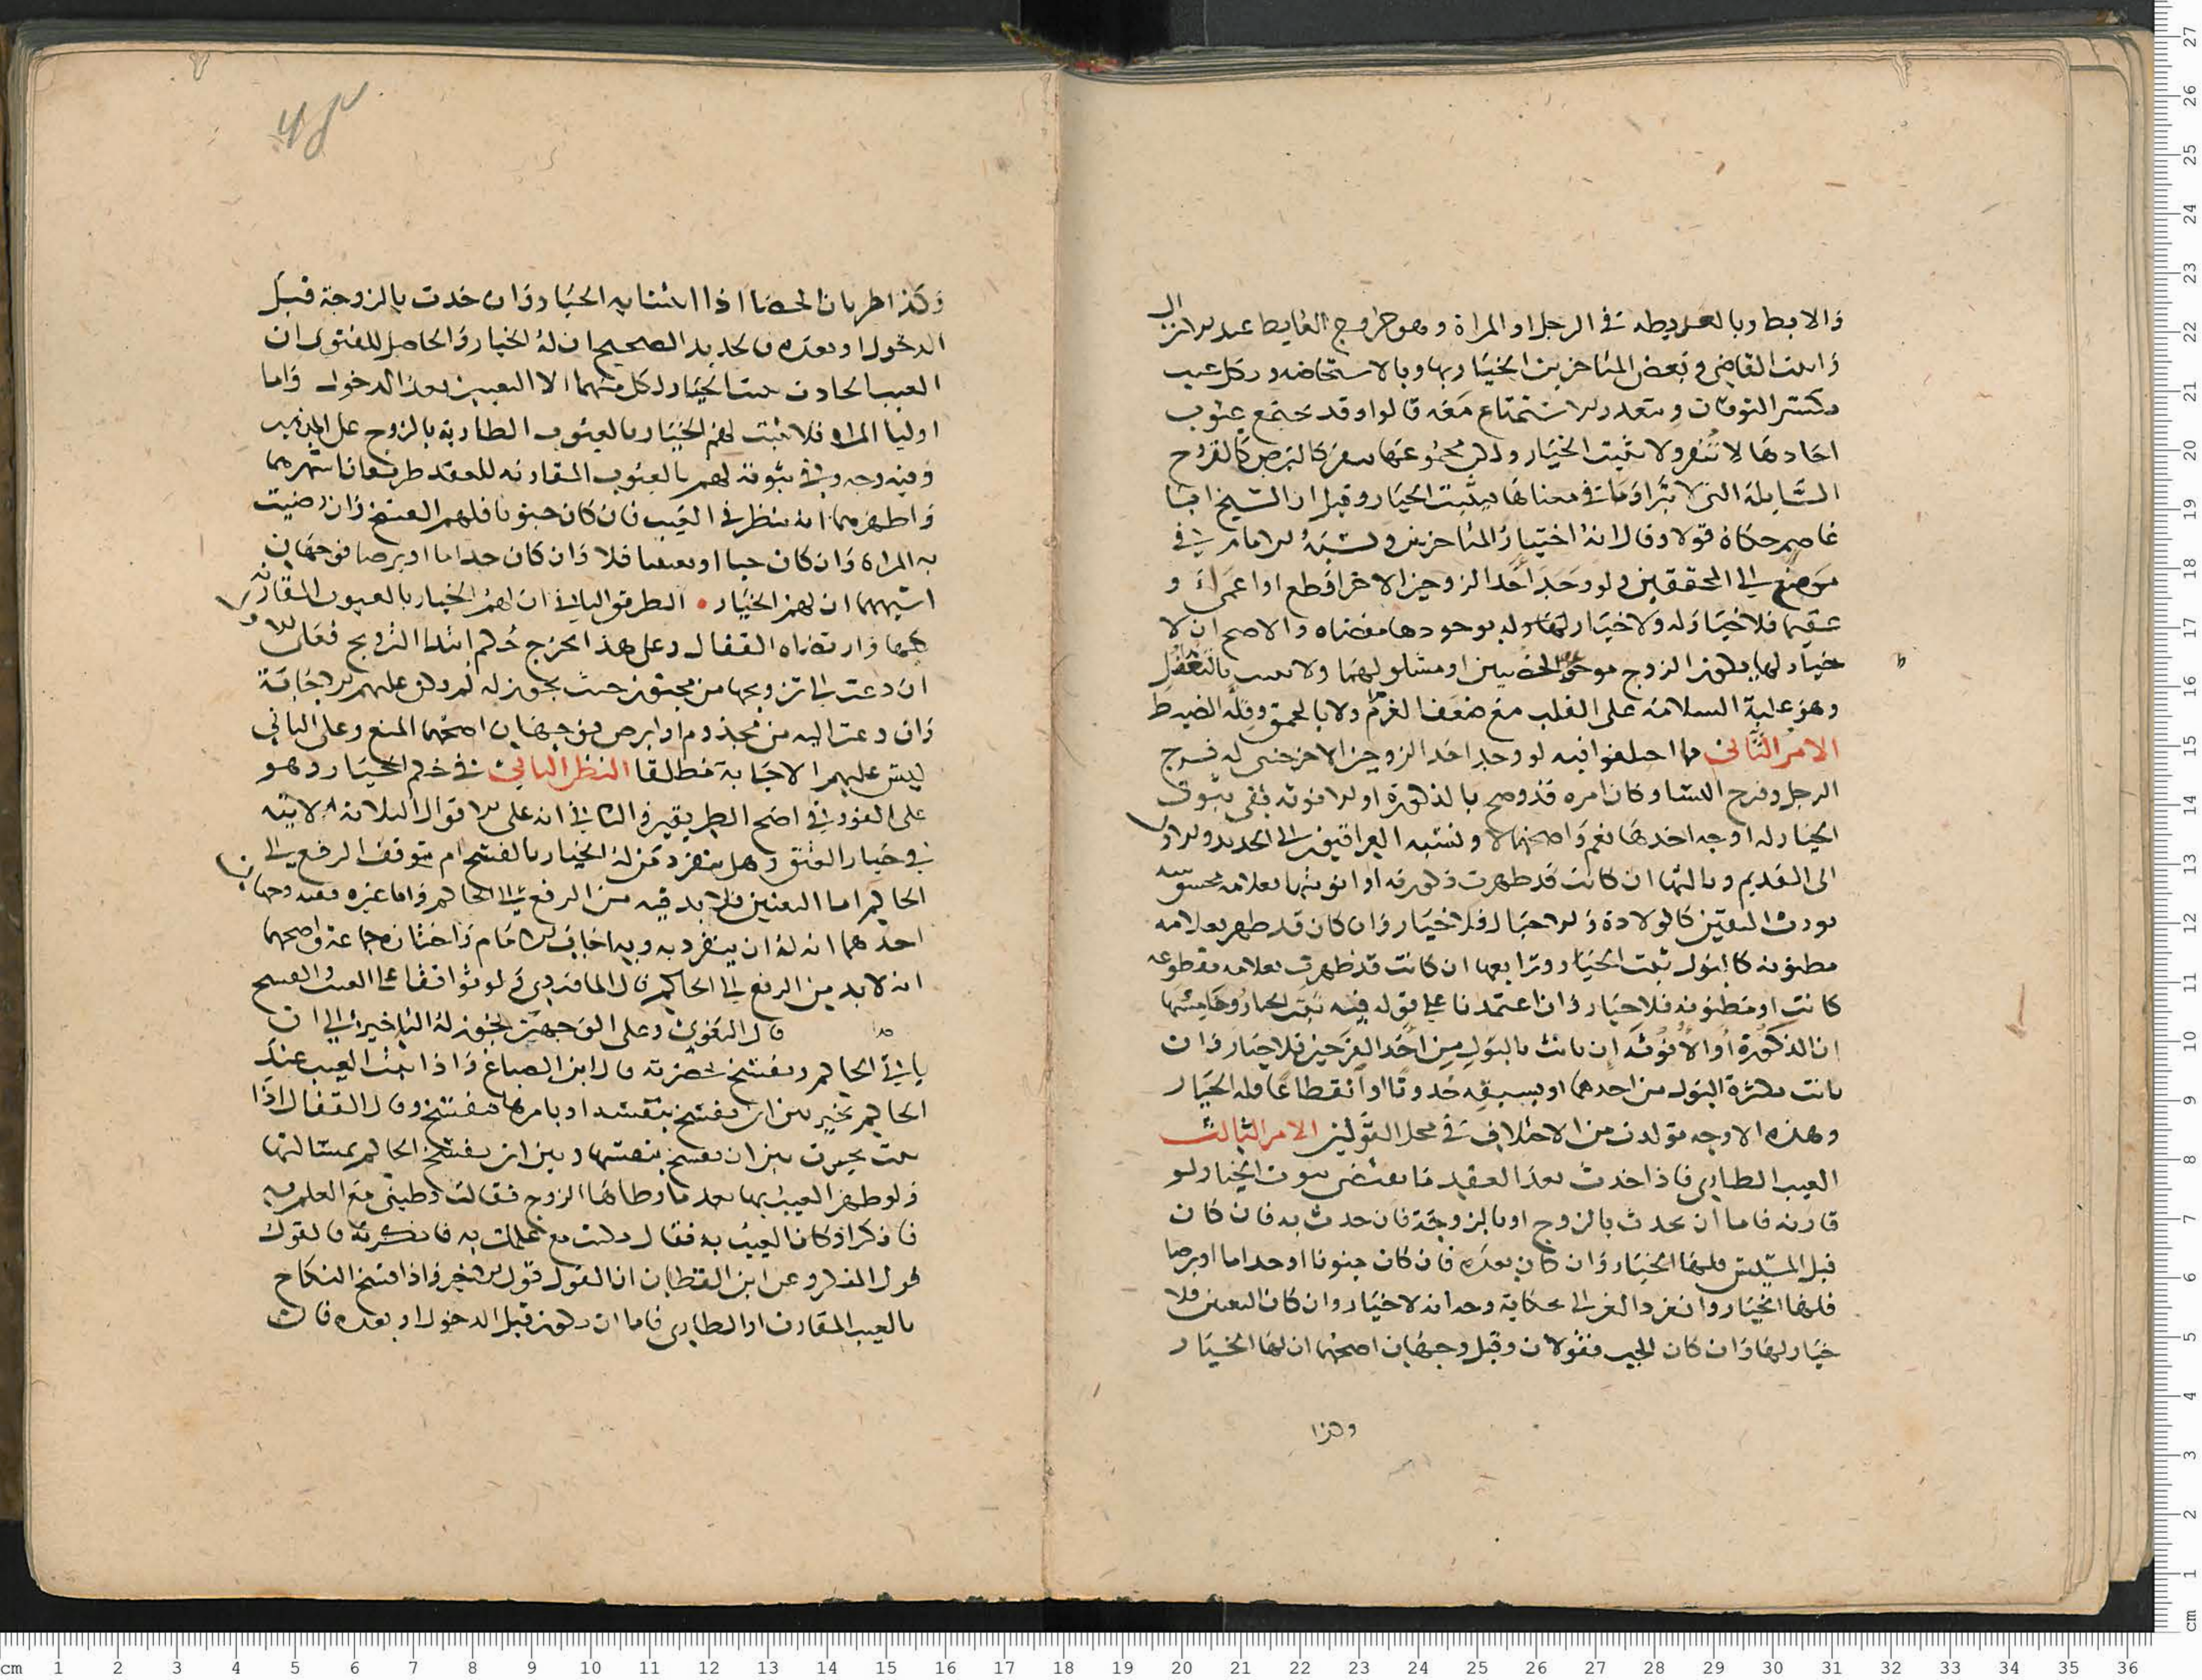 والابط وبالعذيطه في الرجل او المراة وهو خروج الغايط عند الانزال
واثبت القاضي وبعض المتاخرين الخيار بها وبالاستحاضه وبكل عيب
يكسر التوقان ويتعذر الاستمتاع معه قالوا وقد تجتمع عيوب
احادها لا تنفر ولا تثبت الخيار ولكن مجموعها ينفر كالبرص كالقروح
السايلة التي لا تبرا وما في معناها فيثبت الخيار وقيل ان الشيخ ابا
عاصم حكاه قولا وقال انه اختيار المتاخرين ونسبه الامام في
موضع الى المحققين ولو وجد احد الزوجين الاخر اقطع او اعمى او
عقيما فلا خيار له ولا خيار لها وله بوجودها مفضاه والاصح ان لا
خيار لها بكون الزوج موجوء الخصيين او مشلولهما ولا بعيب بالتغفل
وهو غلبة السلامة على القلب مع ضعف الغرم ولا بالحمق وقلة الضبط
الامر الثاني مما اختلفوا فيه لو وجد احد الزوجين الاخر خنثى له فرج
الرجل وفرج النسا وكان امره قد وضح بالذكورة او الانوثه ففي ثبوت
الخيار له اوجه احدها نعم واصحها لا ونسبه العراقيون الى الجديد والاول
الى القديم وثالثها ان كانت قد ظهرت ذكورته او انوثتها بعلامه محسوسه
تورث اليقين كالولادة والاحبال فلا خيار وان كان قد ظهر بعلامه
مظنونه كالبول ثبت الخيار ورابعها ان كانت قد ظهرت بعلامه مقطوعه
كانت او مظنونه فلا خيار وان اعتمدنا على قوله فيه ثبت الخيار وخامسها
ان الذكورة او الانوثه ان بانت بالبول من احد الفرجين فلا خيار وان
بانت بكثرة البول من احدهما او بسبقه حدوثا او انقطاعا فله الخيار
وهذه الاوجه تولدت من الاختلاف في محل القولين الامر الثالث
العيب الطاري فاذا حدث بعد العقد ما يقتضي ثبوت الخيار لو
قارنه فاما ان يحدث بالزوج او بالزوجة فان حدث به فان كان
قبل المسيس فلها الخيار وان كان بعده فان كان جنونا او جذاما او برصا
فلها الخيار وانفرد الغزالي بحكاية وجه انه لا خيار وان كان التعنين فلا
خيار لها وان كان الجب فقولان وقيل وجهان اصحهما ان لها الخيار
وكذا
وكذا طريان الخصا اذا اثبتنا به الخيار وان حدث بالزوجة قبل
الدخول او بعده فالجديد الصحيح ان له الخيار والحاصل للفتوى ان
العيب الحادث يثبت الخيار لكل منهما الا التعنين بعد الدخول واما
اوليا المراة فلا يثبت لهم الخيار بالعيوب الطارية بالزوج على المذهب
وفيه وجه وفي ثبوته لهم بالعيوب المقارنه للعقد طريقان اشهرهما
واظهرهما انه ينظر في العيب فان كان جنونا فلهم الفسخ وان رضيت
به المراة وان كان جبا او تعنينا فلا وان كان جذاما او برصا فوجهان
اشبههما ان لهم الخيار • الطريق الثاني ان لهم الخيار بالعيوب المقارنة
كلها وارتضاه القفال وعلى هذا يخرج حكم ابتدا التزويج فعلى الاول
ان دعت الى تزويجها من مجنون حيث يجوز له لم يكن عليهم الاجابة
وان دعت اليه من مجذوم او ابرص فوجهان اصحهما المنع وعلى الثاني
ليس عليهم الاجابة مطلقا النظر الثاني في حكم الخيار وهو
على الفور في اصح الطريقين والثاني انه على الاقوال الثلاثة الاتيه
في خيار العتق وهل ينفرد من له الخيار بالفسخ ام يتوقف الرفع الى
الحاكم اما التعنين فلا بد فيه من الرفع الى الحاكم واما غيره ففيه وجهان
احدهما انه له ان ينفرد به وبه اجاب الامام واختاره جماعة واصحهما
انه لا بد من الرفع الى الحاكم قال الماوردي لو توافقا على العيب والفسخ
قال البغوي وعلى الوجهين يجوز له التاخير الى ان
ياتي الحاكم ويفسخ بحضرته قال ابن الصباغ واذا اثبت العيب عند
الحاكم تخير بين ان يفسخ بنفسه او يامرها فتفسخ وقال القفال اذا
ثبت تخيرت بين ان تفسخ بنفسها وبين ان يفسخ الحاكم بمسالتها
ولو ظهر العيب بها بعد ما وطاها الزوج فقالت وطيني مع العلم به
فانكر او كان العيب به فقال مكنت مع علمك به فانكرته فالقول
قول المنكر وعن ابن القطان ان القول قول الاخر واذا فسخ النكاح
بالعيب المقارن او الطاري فاما ان يكون قبل الدخول او بعده فان